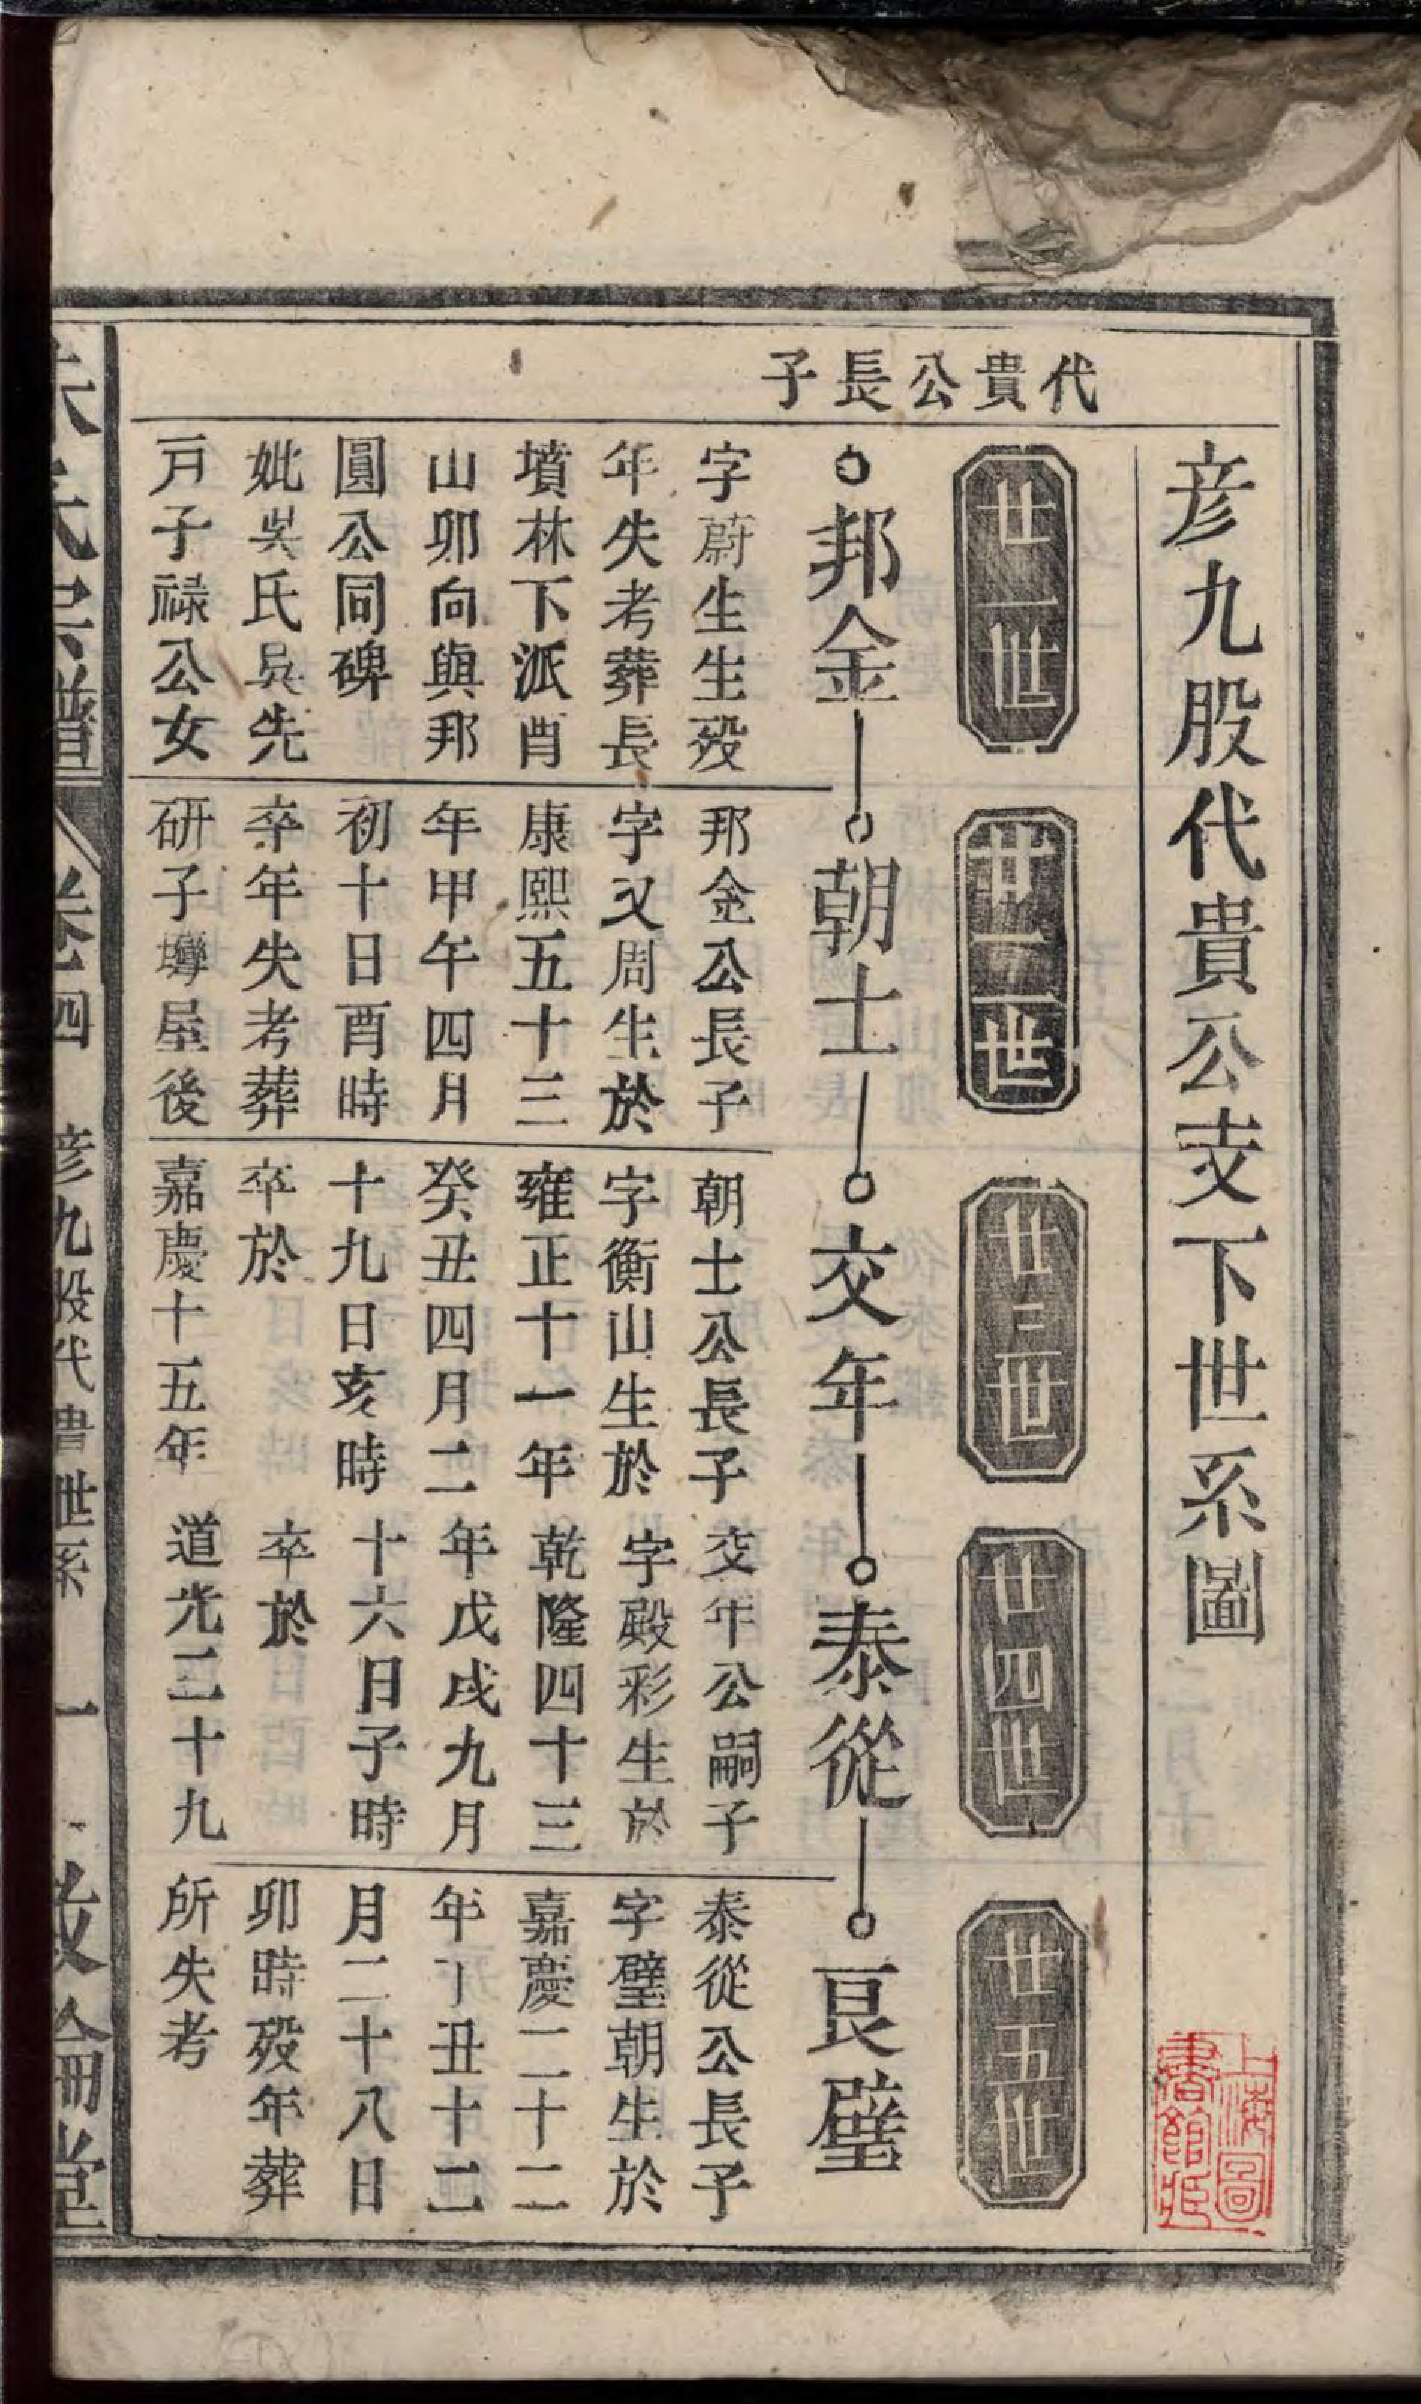 彦九股代貴公支下世系圖
代貴公長子
廿一世
邦金
字蔚生生殁
年失考葬長
墳林下派酉
山卯向與邦
圓公同碑
妣吳氏吳先
戸子禄公女
廿二世
朝士
邦金公長子
字又周生於
康熙五十三
年甲午四月
初十日酉時
卒年失考葬
研子塆屋後
廿三世
交年
朝士公長子
字衡山生於
雍正十一年
癸丑四月二
十九日亥時
卒於
嘉慶十五年
廿四世
泰從
交年公嗣子
字殿彩生於
乾隆四十三
年戊戌九月
十六日子時
卒於
道光二十九
廿五世
艮璧
泰從公長子
字璧朝生於
嘉慶二十二
年丁丑十二
月二十八日
卯時殁年葬
所失考
朱氏宗譜 卷四 彦九股代貴世系 一 敦倫堂
上海圖書館藏